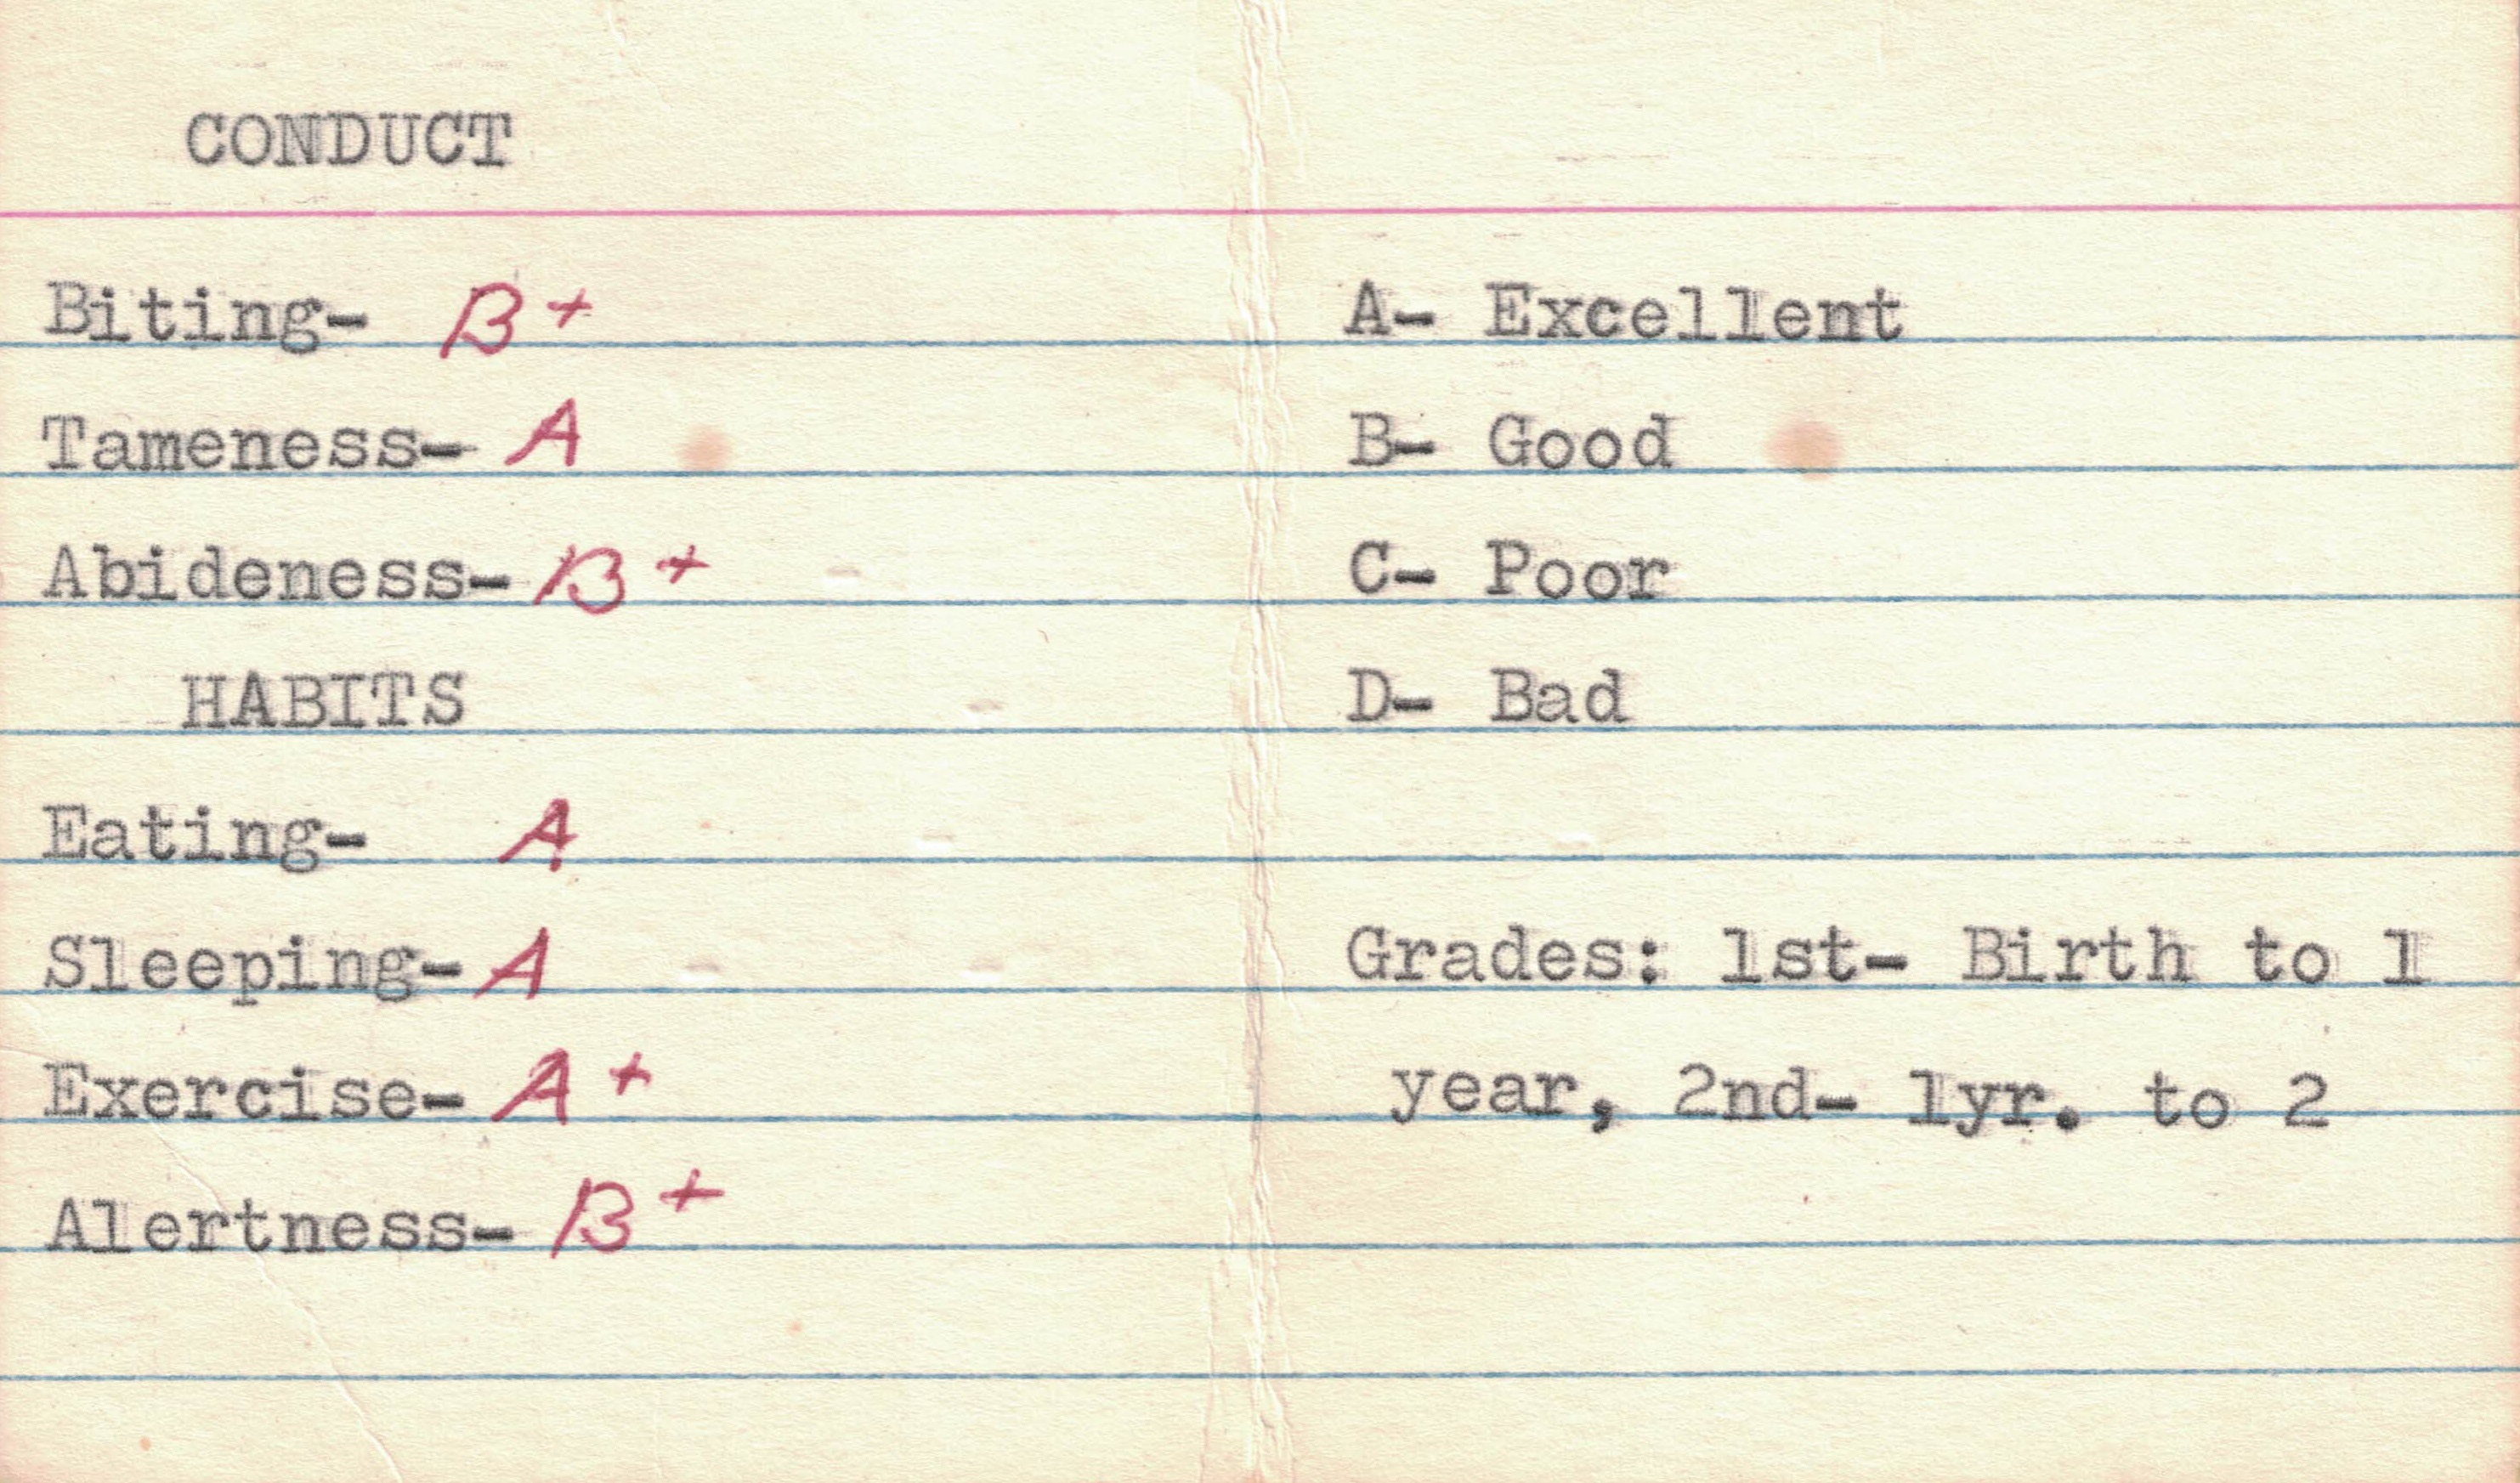 CONDUCT
Biting- B+
Tameness- A
Abideness- B+
HABITS
Eating- A
Sleeping- A
Exercise- A+
Alertness- B+
A- Excellent
B- Good
C- Poor
D- Bad
Grades: 1st- Birth to 1
year, 2nd- 1yr. to 2